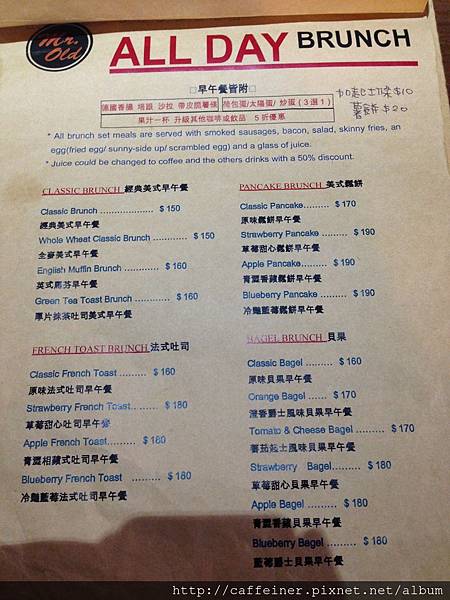 Mr. Old
ALL DAY BRUNCH
□早午餐皆附□
德國香腸 培跟 沙拉 帶皮脆薯條 荷包蛋/太陽蛋/炒蛋(3選1)
果汁一杯 升級其他咖啡或飲品 5折優惠
加起士 $10
薯餅 $20
* All brunch set meals are served with smoked sausages, bacon, salad, skinny fries, an
egg(fried egg/ sunny-side up/ scrambled egg) and a glass of juice.
* Juice could be changed to coffee and the others drinks with a 50% discount.
CLASSIC BRUNCH 經典美式早午餐
Classic Brunch .................... $ 150
經典美式早午餐
Whole Wheat Classic Brunch ............. $ 150
全麥美式早午餐
English Muffin Brunch ............. $ 160
英式馬芬早午餐
Green Tea Toast Brunch ............. $ 160
厚片抹茶吐司美式早午餐
FRENCH TOAST BRUNCH 法式吐司
Classic French Toast ......... $ 160
原味法式吐司早午餐
Strawberry French Toast........... $ 180
草莓甜心吐司早午餐
Apple French Toast.......... $ 180
青澀相藏式吐司早午餐
Blueberry French Toast .......... $ 180
冷豔藍莓法式吐司早午餐
PANCAKE BRUNCH 美式鬆餅
Classic Pancake......... $ 170
原味鬆餅早午餐
Strawberry Pancake ......... $ 190
草莓甜心鬆餅早午餐
Apple Pancake.......... $ 190
青澀香藏鬆餅早午餐
Blueberry Pancake ......... $ 190
冷豔藍莓鬆餅早午餐
BAGEL BRUNCH 貝果
Classic Bagel ......... $ 160
原味貝果早午餐
Orange Bagel ...... $ 170
澄香爵士風味貝果早午餐
Tomato & Cheese Bagel .......... $ 170
蕃茄起士風味貝果早午餐
Strawberry Bagel.......... $ 180
草莓甜心貝果早午餐
Apple Bagel .......... $ 180
青澀香藏貝果早午餐
Blueberry Bagel .......... $ 180
藍莓爵士貝果早午餐
http://caffeiner.pixnet.net/album